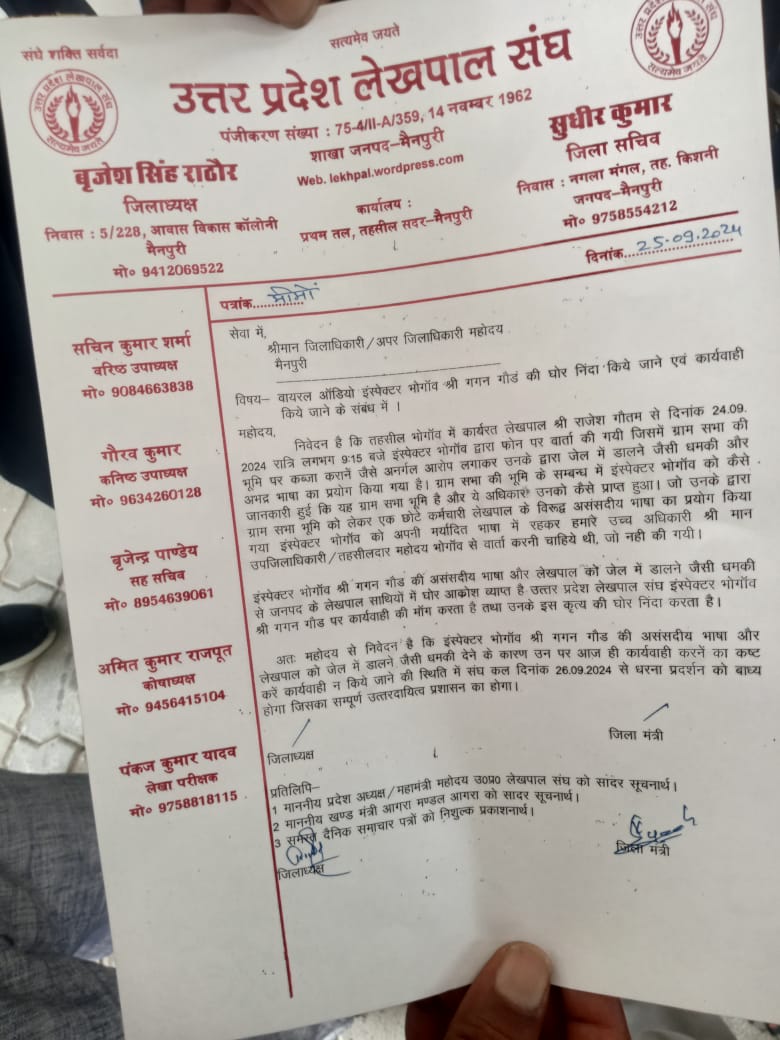 संघे शक्ति सर्वदा
सत्यमेव जयते
उत्तर प्रदेश लेखपाल संघ
उत्तर प्रदेश लेखपाल संघ
सत्यमेव जयते
उत्तर प्रदेश लेखपाल संघ
सत्यमेव जयते
पंजीकरण संख्या : 75-4/II-A/359, 14 नवम्बर 1962
शाखा जनपद–मैनपुरी
Web. lekhpal.wordpress.com
कार्यालय :
प्रथम तल, तहसील सदर–मैनपुरी
बृजेश सिंह राठौर
जिलाध्यक्ष
निवास : 5/228, आवास विकास कॉलोनी
मैनपुरी
मो० 9412069522
सुधीर कुमार
जिला सचिव
निवास : नगला मंगल, तह. किशनी
जनपद–मैनपुरी
मो० 9758554212
पत्रांक..........मीमों
दिनांक..25.09.2024
सचिन कुमार शर्मा
वरिष्ठ उपाध्यक्ष
मो० 9084663838
गौरव कुमार
कनिष्ठ उपाध्यक्ष
मो० 9634260128
बृजेन्द्र पाण्डेय
सह सचिव
मो० 8954639061
अमित कुमार राजपूत
कोषाध्यक्ष
मो० 9456415104
पंकज कुमार यादव
लेखा परीक्षक
मो० 9758818115
सेवा में,
श्रीमान जिलाधिकारी/अपर जिलाधिकारी महोदय
मैनपुरी
विषय– वायरल ऑडियो इंस्पेक्टर भोगॉव श्री गगन गौड की घोर निंदा किये जाने एवं कार्यवाही
किये जाने के संबंध में ।
महोदय,
निवेदन है कि तहसील भोगॉव में कार्यरत लेखपाल श्री राजेश गौतम से दिनांक 24.09.
2024 रात्रि लगभग 9:15 बजे इंस्पेक्टर भोगॉव द्वारा फोन पर वार्ता की गयी जिसमें ग्राम सभा की
भूमि पर कब्जा करानें जैसे अनर्गल आरोप लगाकर उनके द्वारा जेल में डालने जैसी धमकी और
अभद्र भाषा का प्रयोग किया गया है। ग्राम सभा की भूमि के सम्बन्ध में इंस्पेक्टर भोगॉव को कैसे
जानकारी हुई कि यह ग्राम सभा भूमि है और ये अधिकार उनको कैसे प्राप्त हुआ। जो उनके द्वारा
ग्राम सभा भूमि को लेकर एक छोटे कर्मचारी लेखपाल के विरूद्व असंसदीय भाषा का प्रयोग किया
गया इंस्पेक्टर भोगॉव को अपनी मर्यादित भाषा में रहकर हमारे उच्च अधिकारी श्री मान
उपजिलाधिकारी/तहसीलदार महोदय भोगॉव से वार्ता करनी चाहिये थी, जो नही की गयी।
इंस्पेक्टर भोगॉव श्री गगन गौड की असंसदीय भाषा और लेखपाल को जेल में डालने जैसी धमकी
से जनपद के लेखपाल साथियों में घोर आक्रोश व्याप्त है उत्तर प्रदेश लेखपाल संघ इंस्पेक्टर भोगॉव
श्री गगन गौड पर कार्यवाही की मॉग करता है तथा उनके इस कृत्य की घोर निंदा करता है।
अतः महोदय से निवेदन है कि इंस्पेक्टर भोगॉव श्री गगन गौड की असंसदीय भाषा और
लेखपाल को जेल में डालने जैसी धमकी देने के कारण उन पर आज ही कार्यवाही करनें का कष्ट
करें कार्यवाही न किये जाने की स्थिति में संघ कल दिनांक 26.09.2024 से धरना प्रदर्शन को बाध्य
होगा जिसका सम्पूर्ण उत्तरदायित्व प्रशासन का होगा।
जिलाध्यक्ष
जिला मंत्री
प्रतिलिपि–
1 माननीय प्रदेश अध्यक्ष/महामंत्री महोदय उ०प्र० लेखपाल संघ को सादर सूचनार्थ।
2 माननीय खण्ड मंत्री आगरा मण्डल आगरा को सादर सूचनार्थ।
3 समस्त दैनिक समाचार पत्रों को निशुल्क प्रकाशनार्थ।
जिलाध्यक्ष
जिला मंत्री